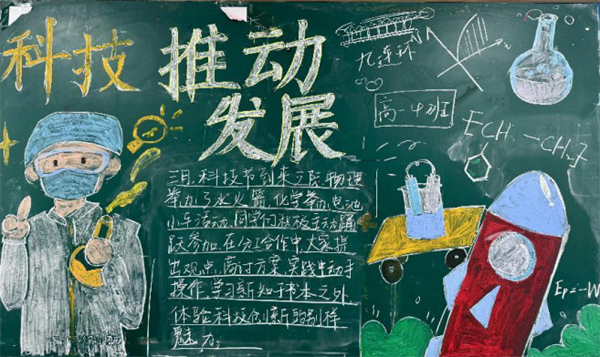 科技 推动
发展
九连环
高一4班
ECH₂—CH₂
三月,科技节到来之际,物理
举办了水火箭,化学举办电池
小车活动,同学们积极主动踊
跃参加,在分工合作中大家提
出观点,商讨方案,实践中动手
操作,学习新知于书本之外,
体验科技创新的别样
魅力。
Ep=-W